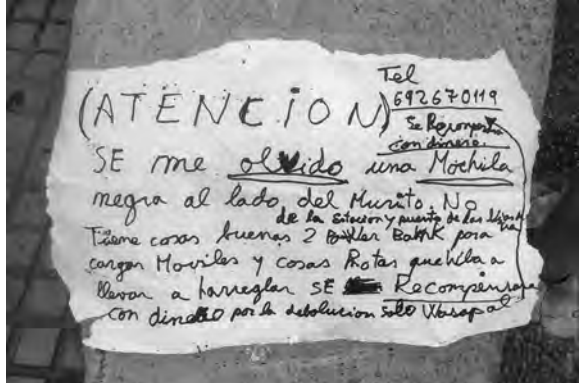 Tel
692670119
Se Recompensa
con dinero.
(ATENCION)
SE me olvido una Mochila
negra al lado del Murito. No
de la estacion y puerta de las
Tiene cosas buenas 2 Power BaNK para
cargar Moviles y cosas Rotas que hiba a
llevar a harreglar SE Recompensara
con dinero por la debolucion solo Wasap al